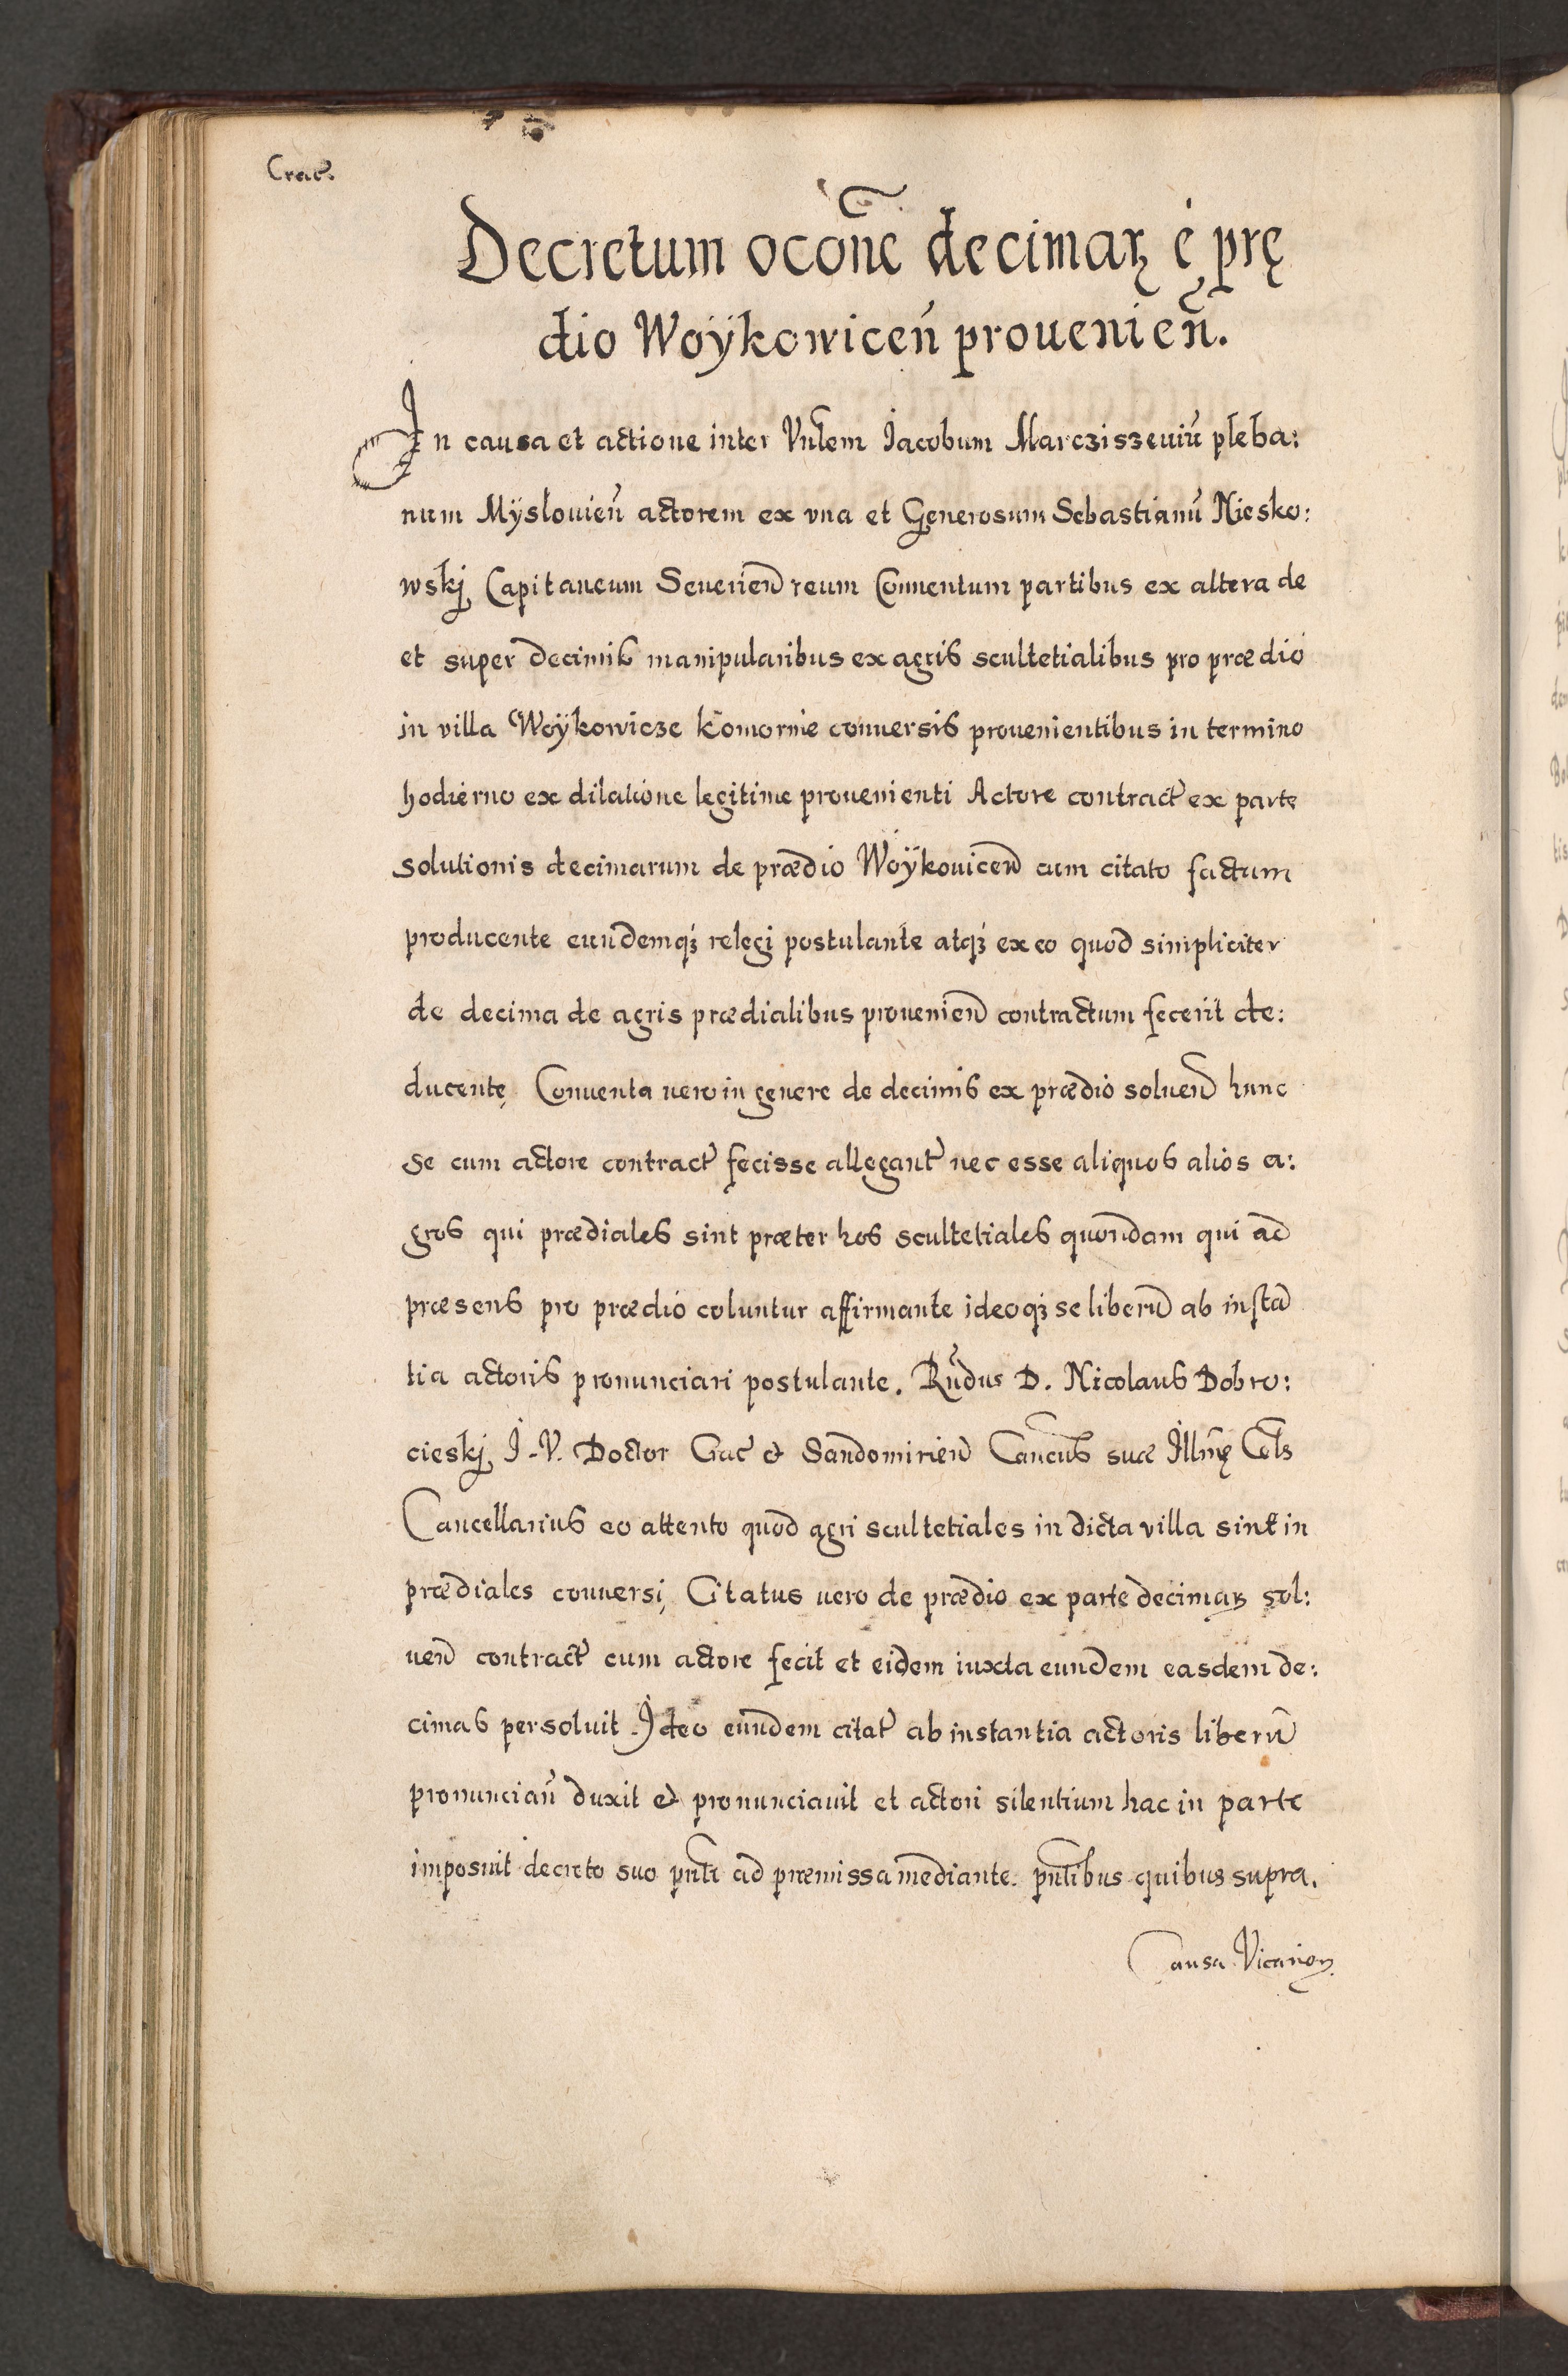 Crac̃.
Decretum oc̃one decimaꝝ è prę
dio Woÿkowiceñ prouenieñ.
In causa et actione inter Vnłem Jacobum Marcziszeuiũ pleba:
num Mÿsłouieñ actorem ex vna et Generosum Sebastianũ Niesko:
wskj Capitaneum Seuerieñ reum Conuentum partibus ex altera de
et super decimis manipularibus ex agris scultetialibus pro prædio
in villa Woÿkowicze Komorne conuersis prouenientibus in termino
hodierno ex dilatione legitime prouenienti Actore contract̃ ex parte
solutionis decimarum de prædio Woÿkouiceñ cum citato factum
producente eundemqꝫ relegi postulante atqꝫ ex eo quod simpliciter
de decima de agris prædialibus prouenieñ contractum fecerit de:
ducente, Conuenta vero in genere de decimis ex prædio solueñ hunc
se cum actore contract̃ fecisse allegant̃ nec esse aliquos alios a:
gros qui prædiales sint præter hos scultetiales quondam qui ad
præsens pro prædio coluntur affirmante ideoqꝫ se liberũ ab instã
tia actoris pronunciari postulante. Rñdus D. Nicolaus Dobro:
cieskj J. V. Doctor Crac̃ et Sandomirieñ Cancus suæ Illmę Cels
Cancellarius eo attento quod agri scultetiales in dicta villa sint in
prædiales conuersi, Citatus uero de prædio ex parte decimaꝝ sol:
ueñ contract̃ cum actore fecit et eidem iuxta eundem easdem de:
cimas persoluit. Ideo eundem citat̃ ab instantia actoris liberũ
pronunciañ duxit et pronunciauit et actori silentium hac in parte
imposuit decreto suo pñti ad præmissa mediante. pñtibus quibus supra.
Causa Vicarioꝝ